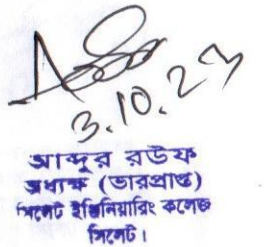 3.10.23
আব্দুর রউফ
অধ্যক্ষ (ভারপ্রাপ্ত)
সিলেট ইঞ্জিনিয়ারিং কলেজ
সিলেট।